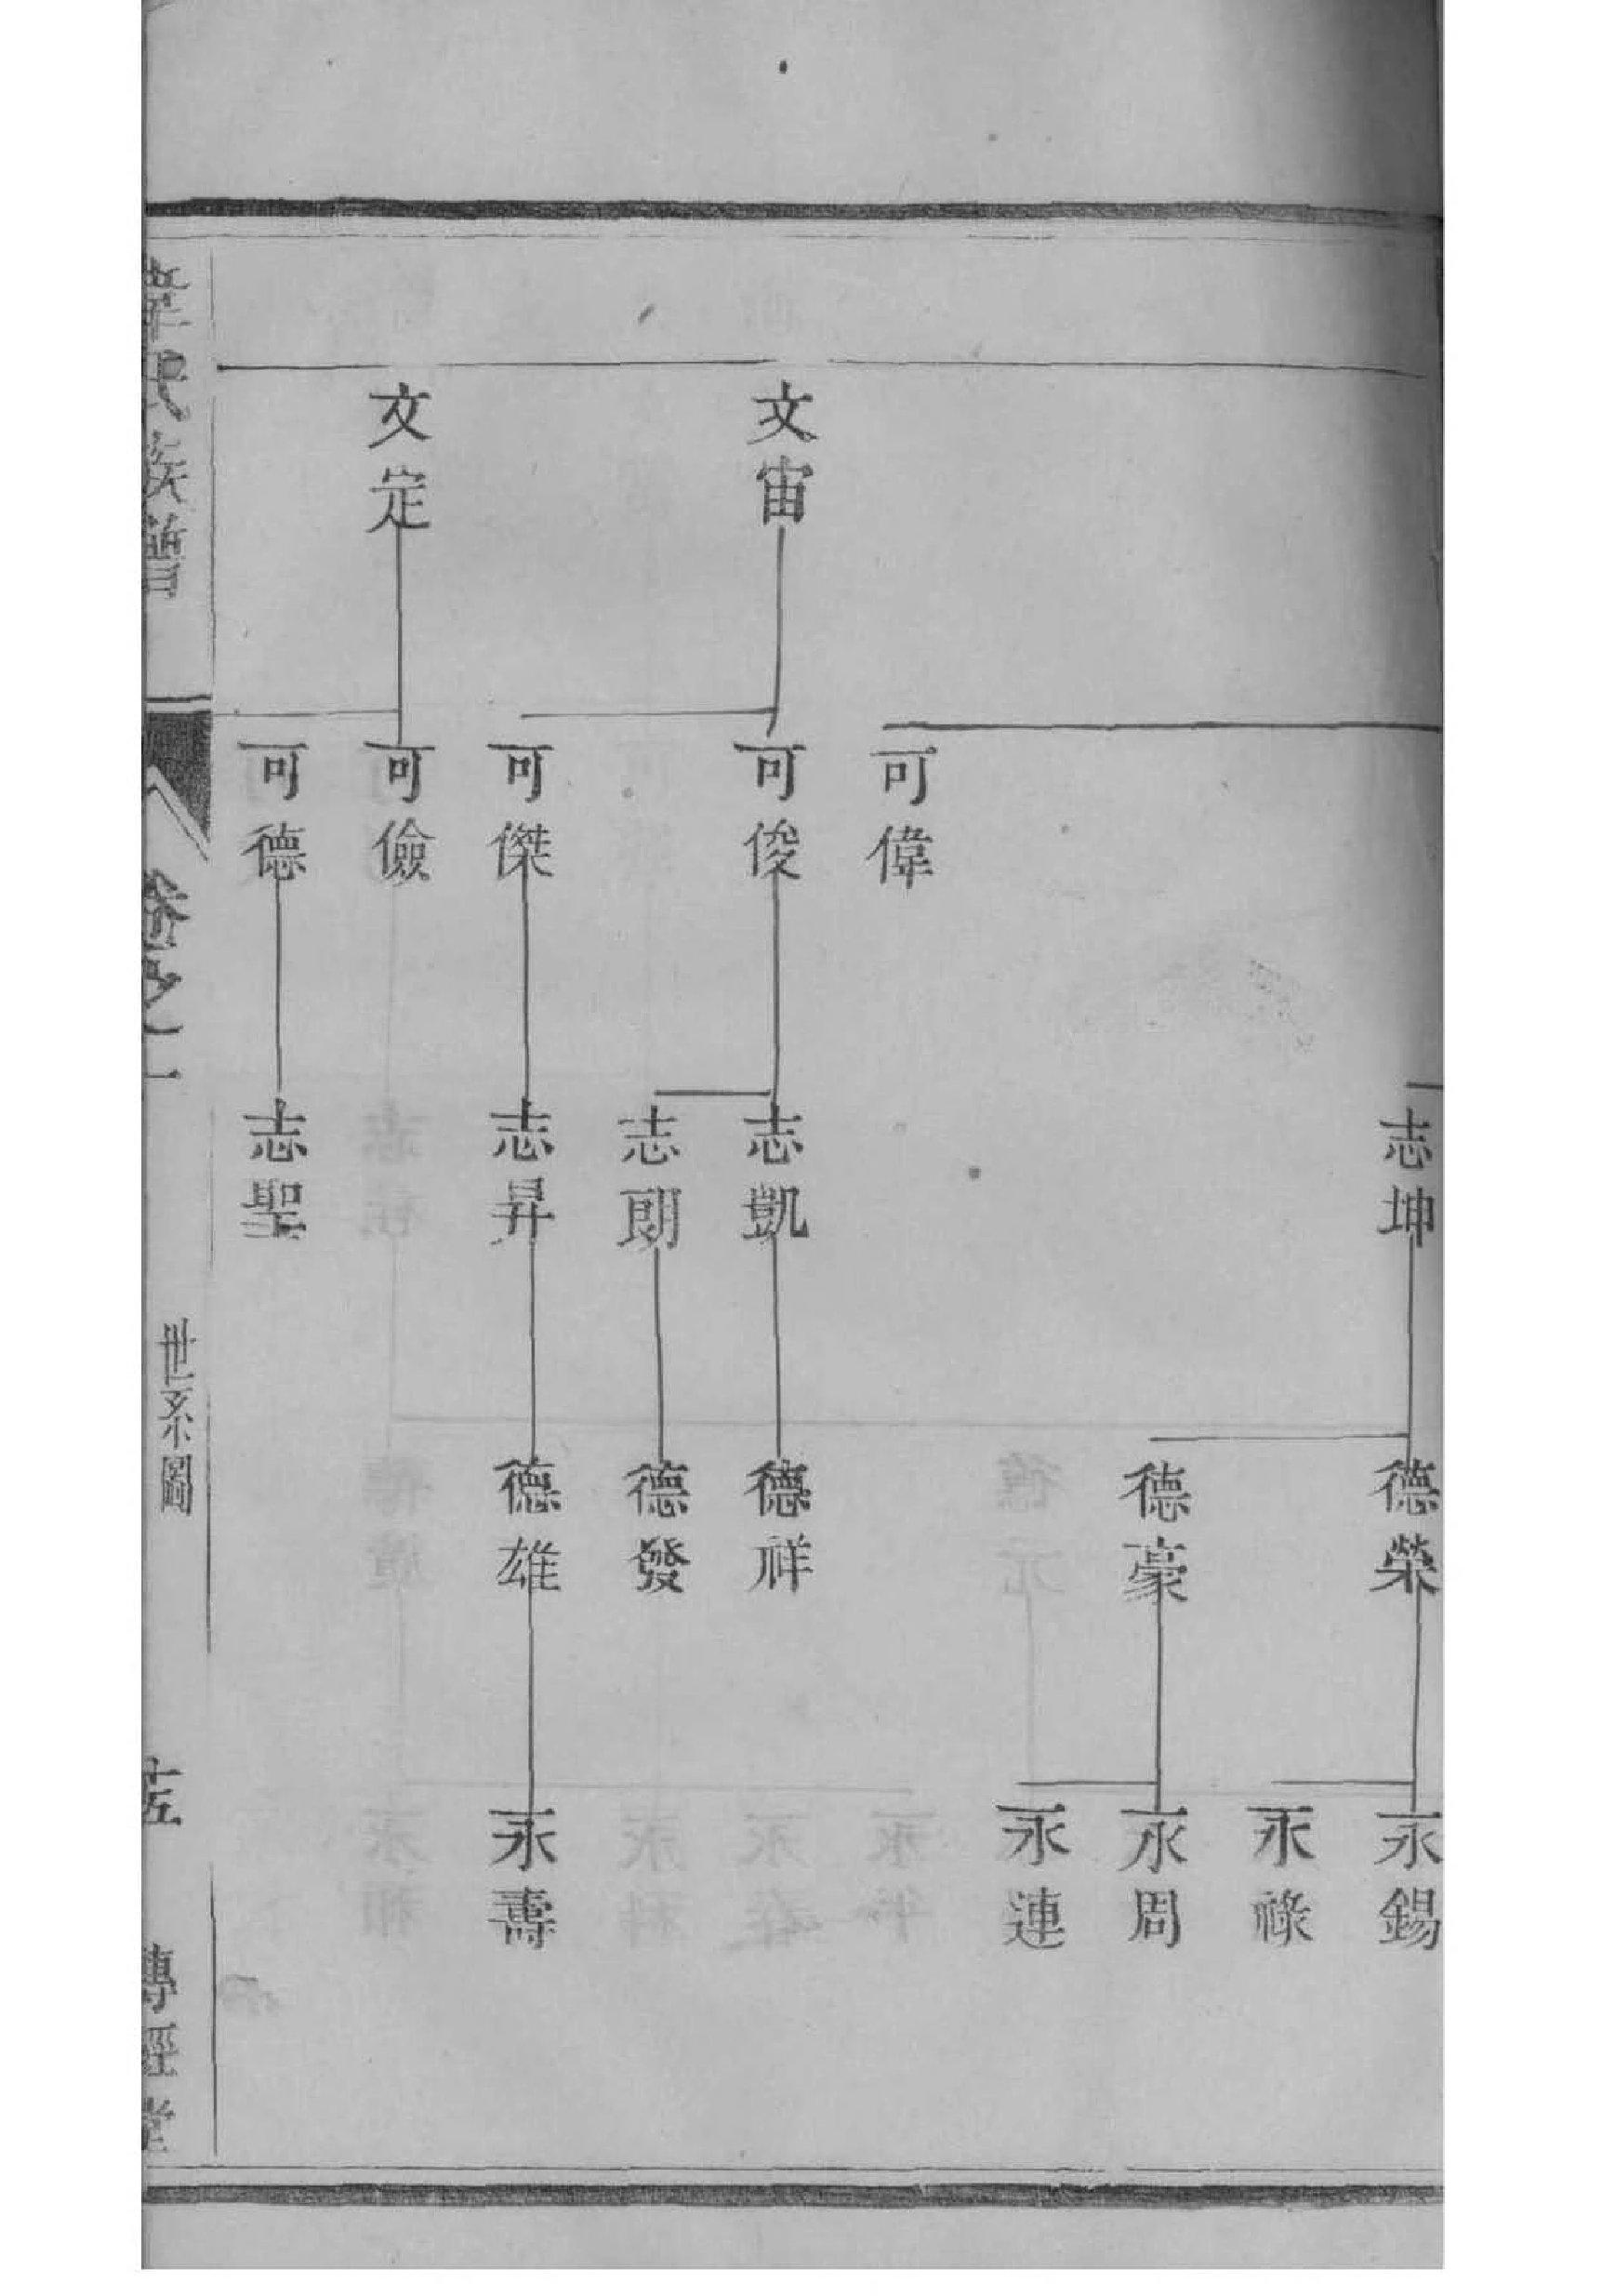 文宙
文定
可偉
可俊
可傑
可儉
可德
志坤
志凱
志朗
志昇
志聖
德榮
德豪
德祥
德發
德雄
永錫
永祿
永周
永連
永壽
氏族譜
卷之一
世系圖
傳經堂